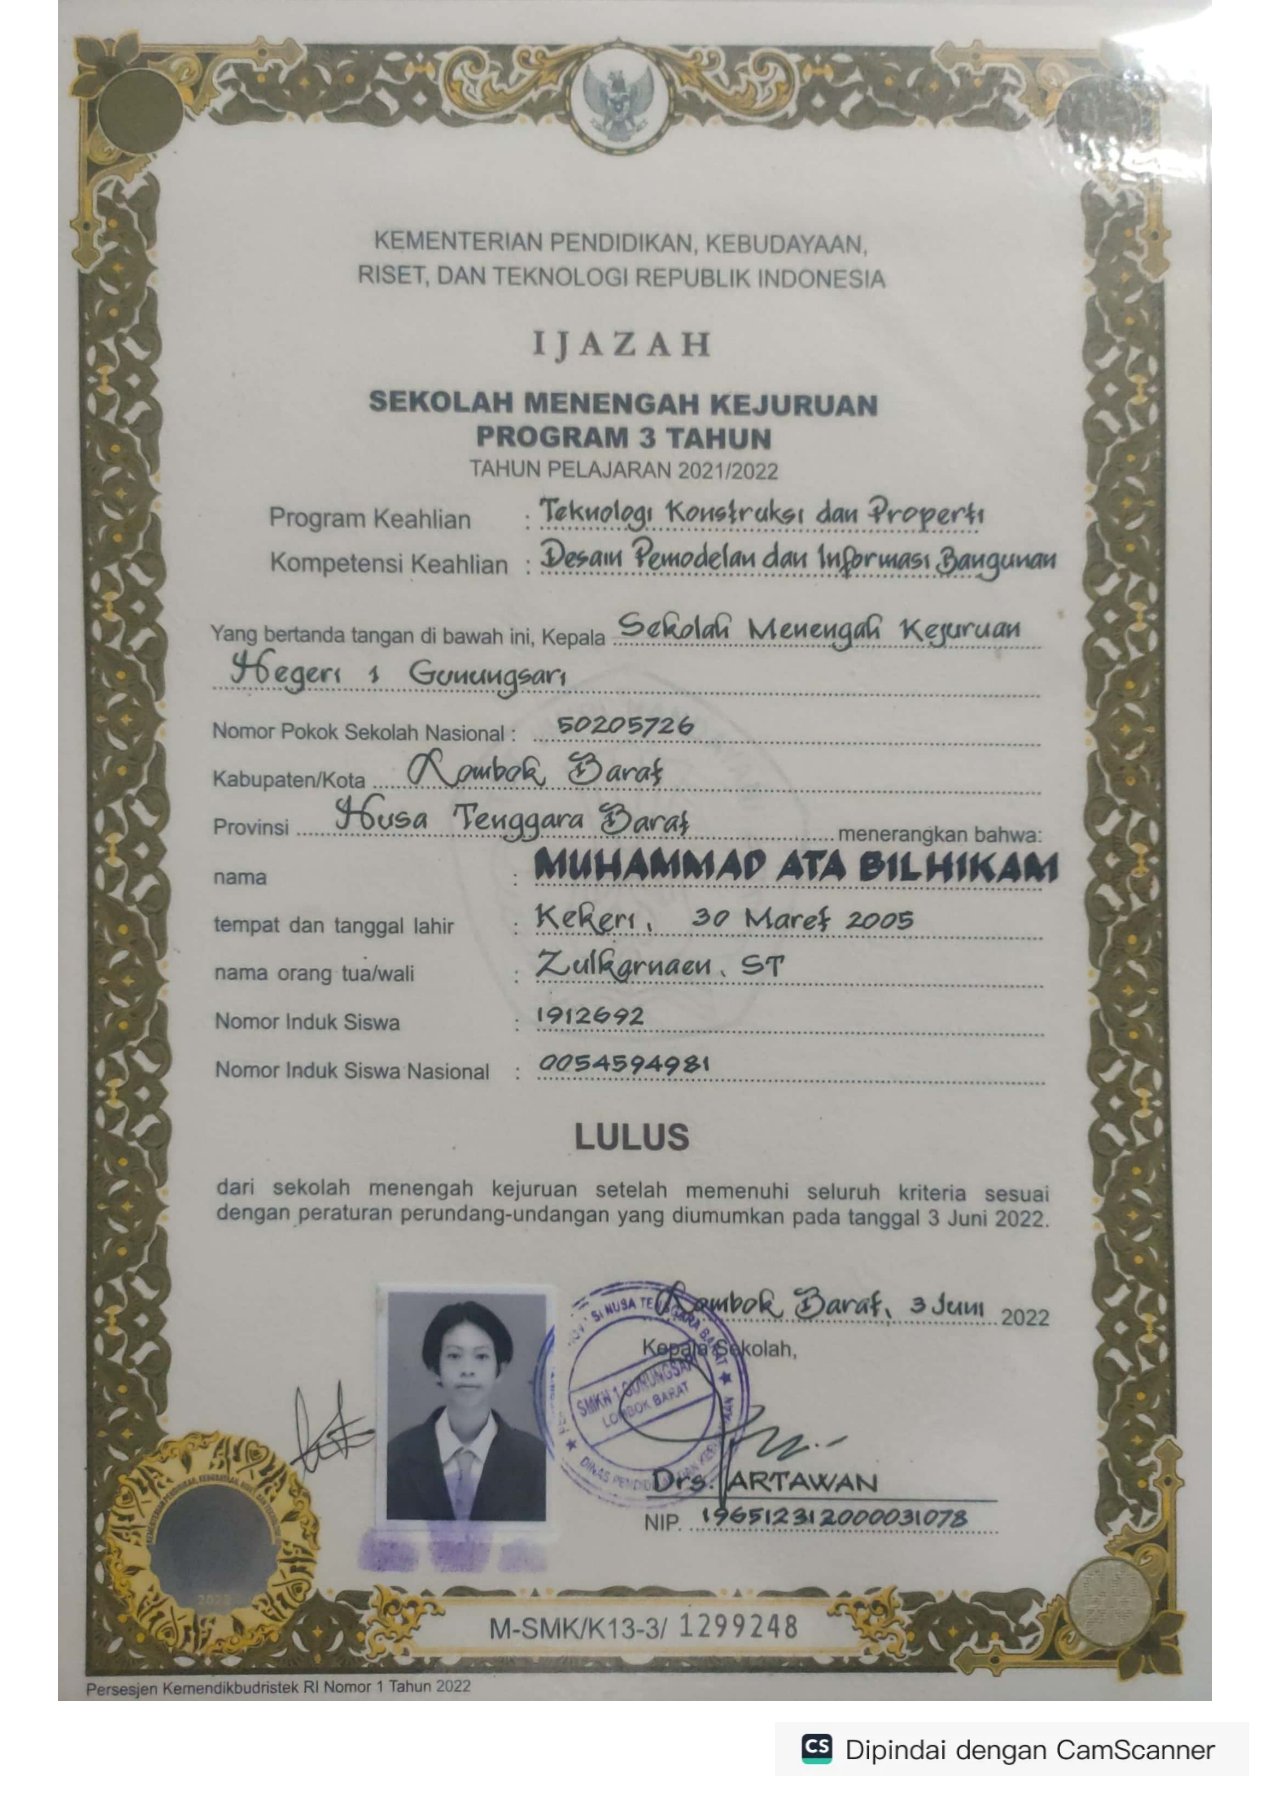 KEMENTERIAN PENDIDIKAN, KEBUDAYAAN,
RISET, DAN TEKNOLOGI REPUBLIK INDONESIA
IJAZAH
SEKOLAH MENENGAH KEJURUAN
PROGRAM 3 TAHUN
TAHUN PELAJARAN 2021/2022
Program Keahlian : Teknologi Konstruksi dan Properti
Kompetensi Keahlian : Desain Pemodelan dan Informasi Bangunan
Yang bertanda tangan di bawah ini, Kepala Sekolah Menengah Kejuruan
Negeri 1 Gunungsari
Nomor Pokok Sekolah Nasional : 50205726
Kabupaten/Kota Lombok Barat
Provinsi Nusa Tenggara Barat menerangkan bahwa:
nama : MUHAMMAD ATA BILHIKAM
tempat dan tanggal lahir : Kekeri, 30 Maret 2005
nama orang tua/wali : Zulkarnaen, ST
Nomor Induk Siswa : 1912692
Nomor Induk Siswa Nasional : 0054594981
LULUS
dari sekolah menengah kejuruan setelah memenuhi seluruh kriteria sesuai
dengan peraturan perundang-undangan yang diumumkan pada tanggal 3 Juni 2022.
Lombok Barat, 3 Juni 2022
Kepala Sekolah,
SI NUSA TENGGARA BARAT
SMKN 1 GUNUNGSARI
LOMBOK BARAT
DINAS PENDIDIKAN DAN
Drs. ARTAWAN
NIP. 196512312000031078
2022
M-SMK/K13-3/ 1299248
Persesjen Kemendikbudristek RI Nomor 1 Tahun 2022
CS Dipindai dengan CamScanner